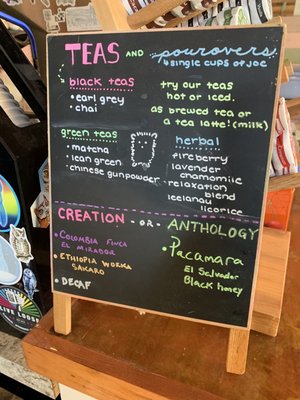 TEAS AND pourovers
single cups of joe
black teas
• earl grey
• chai
try our teas
hot or iced.
as brewed tea or
a tea latte! (milk)
green teas
• matcha
• lean green
• chinese gunpowder
herbal
fireberry
lavender
chamomile
relaxation
blend
icelandu
licorice
CREATION - OR - ANTHOLOGY
• COLOMBIA FINCA
EL MIRADOR
• ETHIOPIA WORKA
SAKARO
• DECAF
• Pacamara
El Salvador
Black honey